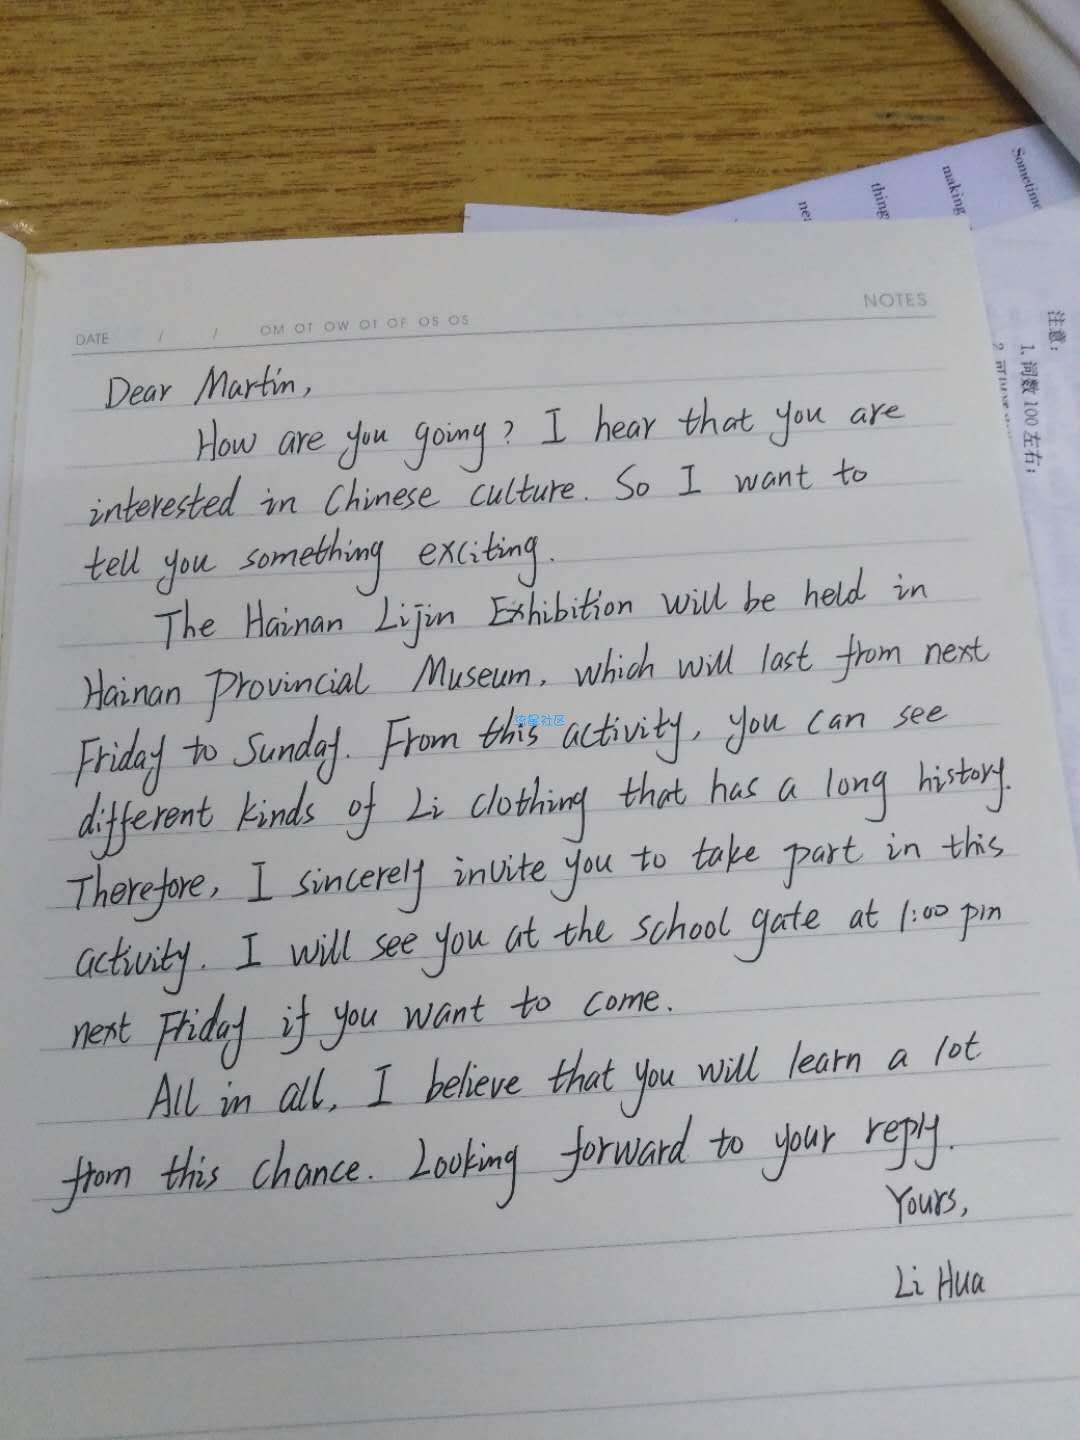 Sometime
making
thing
注意:
1. 词数 100 左右;
NOTES
DATE / / OM OT OW OT OF OS OS
Dear Martin,
How are you going? I hear that you are
interested in Chinese culture. So I want to
tell you something exciting.
The Hainan Lijin Exhibition will be held in
Hainan Provincial Museum, which will last from next
Friday to Sunday. From this activity, you can see
流星社区
different kinds of Li clothing that has a long history.
Therefore, I sincerely invite you to take part in this
activity. I will see you at the school gate at 1:00 pm
next Friday if you want to come.
All in all, I believe that you will learn a lot
from this chance. Looking forward to your reply.
Yours,
Li Hua